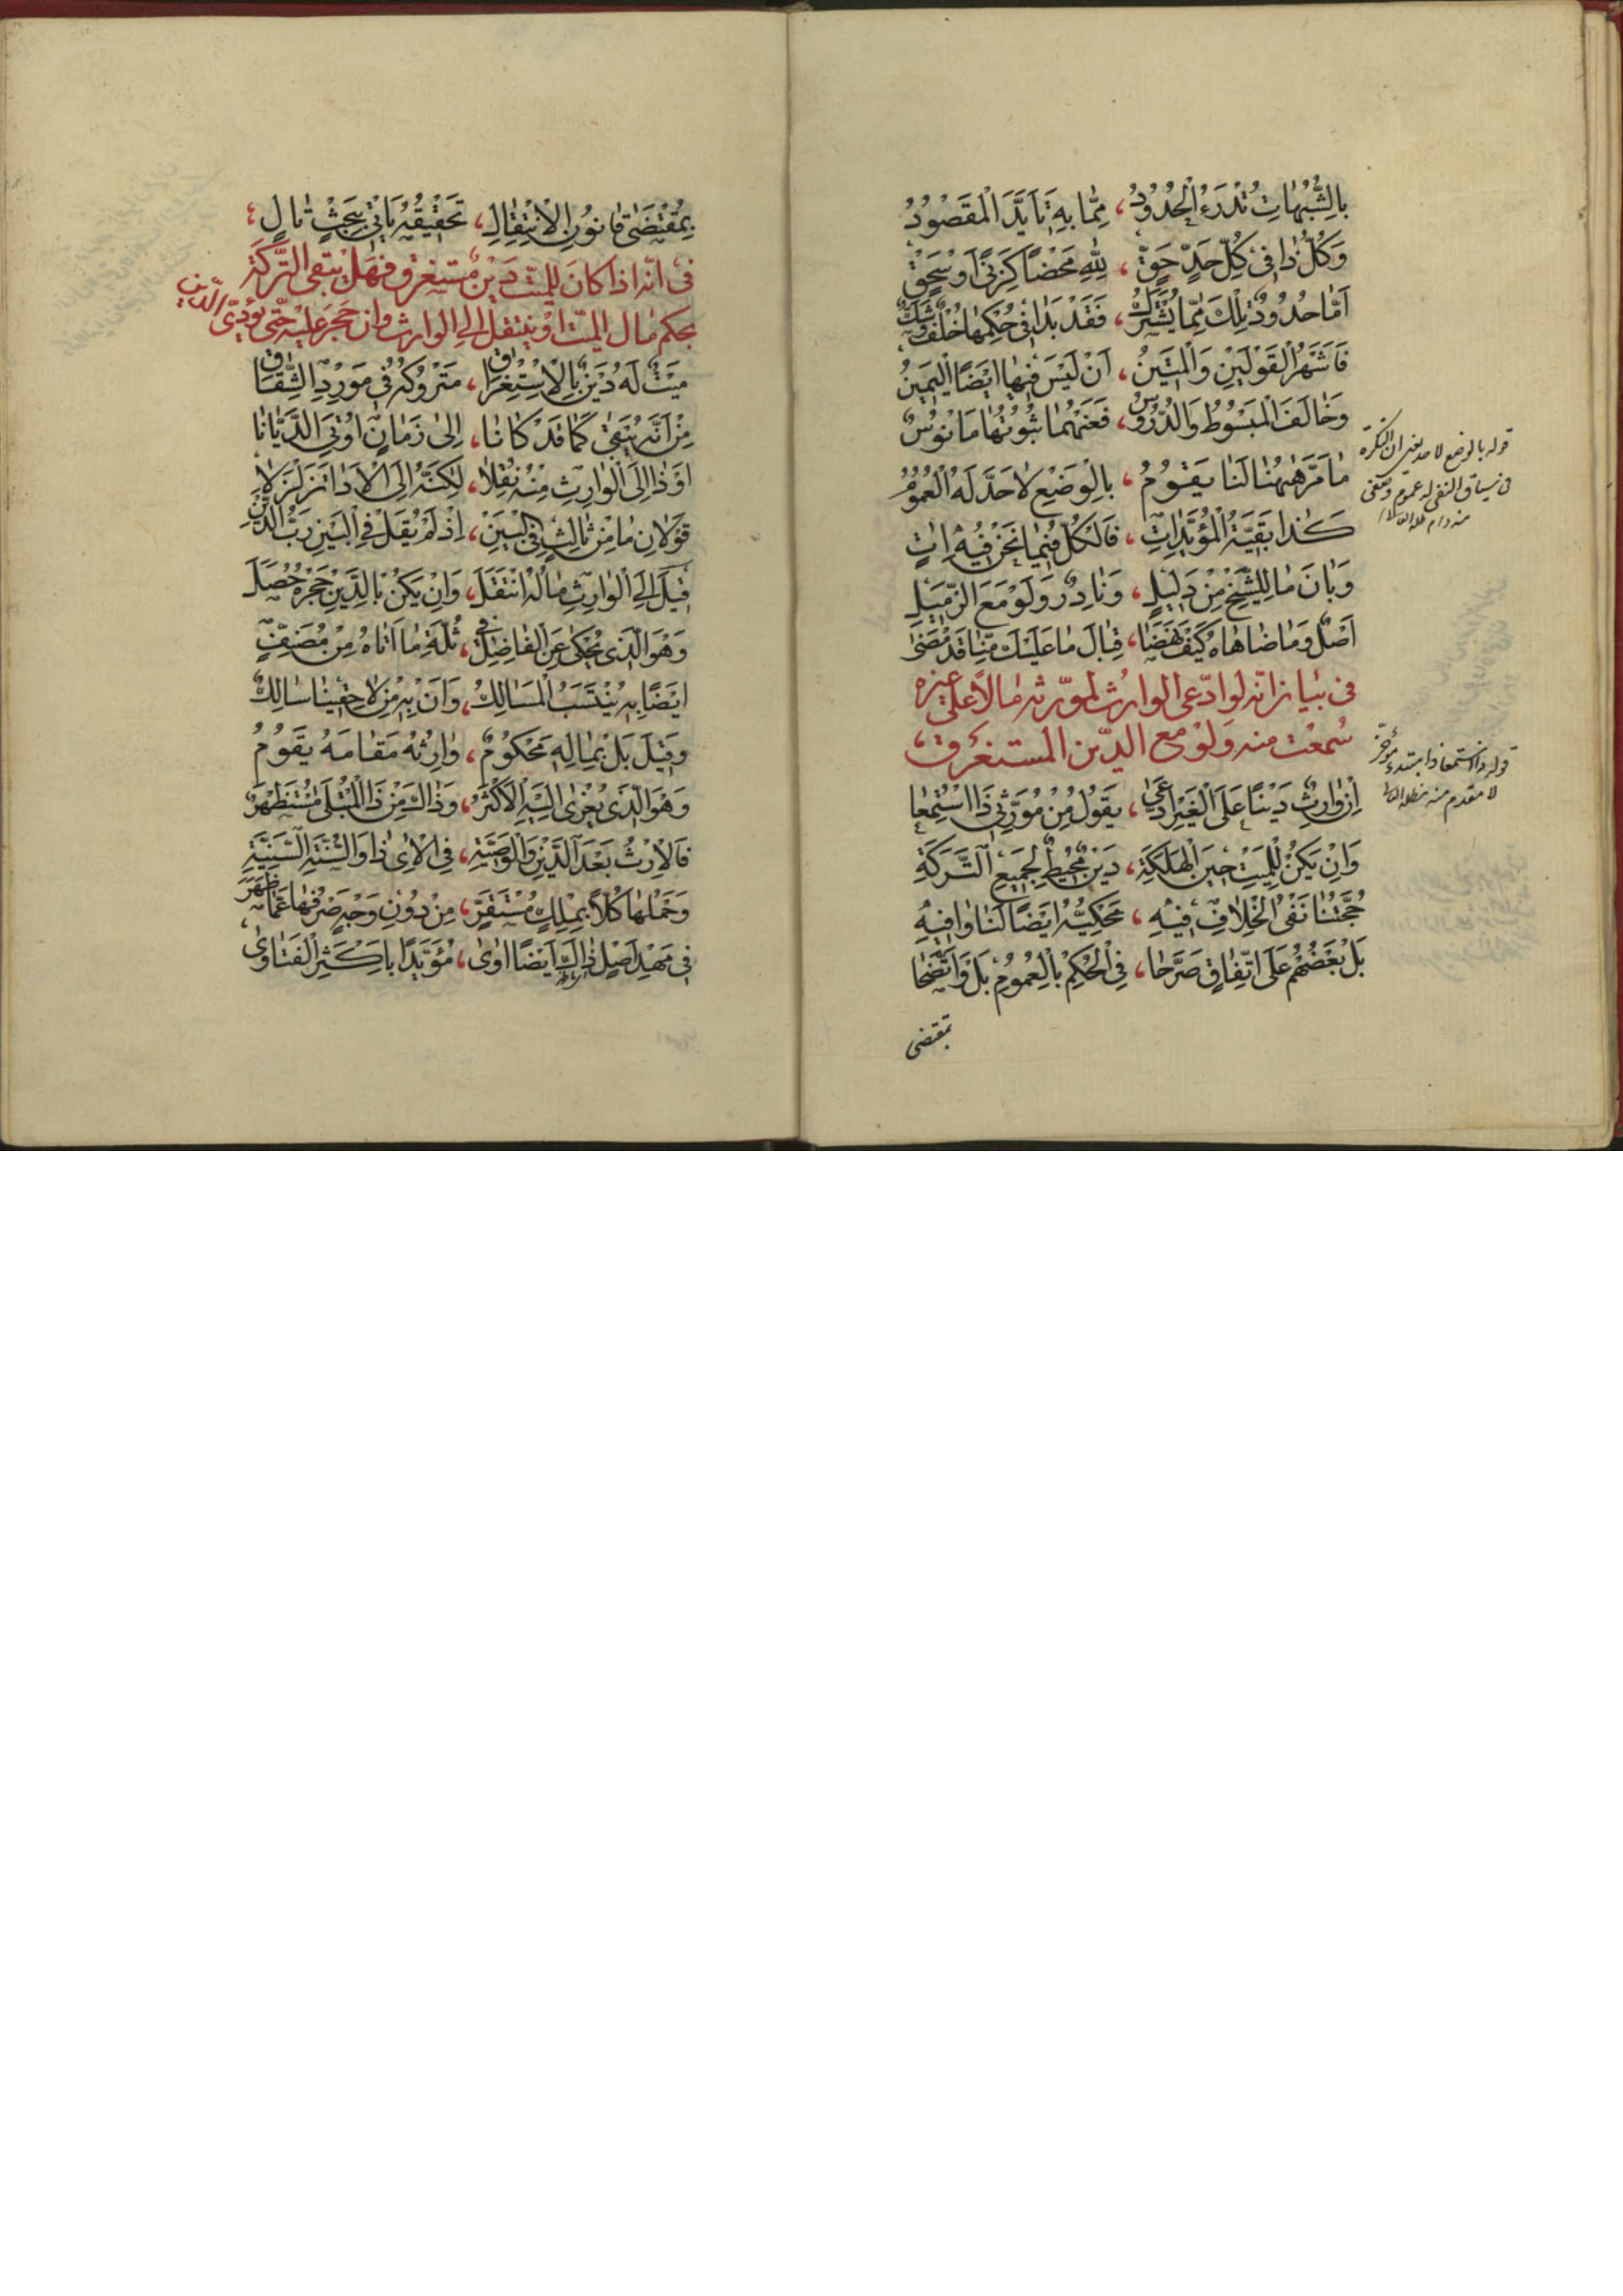 بِالشُّبُهَاتِ تُدْرَءُ الْحُدُودُ ، مِمَّا بِهِ تَأَيَّدَ الْمَقْصُودُ
وَكُلُّ ذَا فِي كُلِّ حَدٍّ حَقٍّ ، لِلّٰهِ مَحْضًا كَزِنًى اَوْ سَحْقٍ
اَمَّا حُدُودٌ تِلْكَ مِمَّا يُشْتَرَكُ ، فَقَدْ بَدَا فِي حُكْمِهَا خُلْفٌ وَشَكٌّ
فَاَشْهَرُ الْقَوْلَيْنِ وَالْمَتِينُ ، اَنْ لَيْسَ فِيهَا اَيْضًا الْيَمِينُ
وَخَالَفَ الْمَبْسُوطُ وَالدُّرُوسُ ، فَعَنْهُمَا ثُبُوتُهَا مَانُوسٌ
مَا مَرَّ هٰهُنَا لَنَا يَقُومُ ، بِالْوَضْعِ لَا حَدَّ لَهُ الْعُمُومُ
كَذَا بَقِيَّةُ الْمُؤَيِّدَاتِ ، فَالْكُلُّ فِيمَا نَحْنُ فِيهِ اٰتٍ
وَبَانَ مَا لِلشَّيْخِ مِنْ دَلِيلٍ ، وَنَادِرٌ وَلَوْ مَعَ الزَّمِيلِ
اَصْلٌ وَمَا ضَاهَاهُ كَيْفَ نَهَضَا ، قِبَالَ مَا عَلَيْكَ مِنَّا قَدْ مَضَى
فى بيان انه لو ادّعى الوارث لمورّثه مالاً على غيره
سُمعت منه ولو مع الدّين المستغرق
اِنْ وَارِثٌ دَيْنًا عَلَى الْغَيْرِ ادَّعَى ، يَقُولُ مِنْ مُوَرِّثِى ذَا اسْتُمِعَا
وَاِنْ يَكُنْ لِلْمَيْتِ حِينَ الْهَلَكَةِ ، دَيْنٌ مُحِيطٌ لِجَمِيعِ التَّرَكَةِ
حُجَّتُنَا نَفْىُ الْخِلَافِ فِيهِ ، مَحْكِيُّهُ اَيْضًا لَنَا وَافِيهِ
بَلْ بَعْضُهُمْ عَلَى اتِّفَاقٍ صَرَّحَا ، فِى الْحُكْمِ بِالْعُمُومِ بَلْ وَاتَّضَحَا
بمقتضى
قوله بالوضع لا حد يعنى ان النكرة
فى سياق النفى له عموم وضعى
منه دام ظله العالى
قوله ذا استمعا ذا مبتدء مؤخر
لا مقدم منه مد ظله العالى
بِمُقْتَضَى قَانُونِ الْاِنْتِقَالِ ، تَحْقِيقُهُ يَأْتِي بِبَحْثٍ تَالٍ
فى انّه اذا كان للميّت دين مستغرق فهل يبقى التّركة
بحكم مال الميّت او ينتقل الى الوارث وان حجر عليه حتّى يؤدّى الدّين
مَيْتٌ لَهُ دَيْنٌ بِالْاِسْتِغْرَاقِ ، مَتْرُوكُهُ فِي مَوْرِدِ الشِّقَاقِ
مِنْ اَنَّهُ يَبْقَى كَمَا قَدْ كَانَا ، اِلَى زَمَانٍ اُوتِيَ الدَّيَّانَا
اَوْ ذَا اِلَى الْوَارِثِ مِنْهُ نُقِلَا ، لٰكِنَّهُ اِلَى الْاَدَا تَزَلْزَلَا
قَوْلَانِ مَا مِنْ ثَالِثٍ فِى الْبَيْنِ ، اِذْ لَمْ يُقَلْ فِى الْبَيْنِ رَبُّ الدَّيْنِ
قِيلَ اِلَى الْوَارِثِ مَالُهُ انْتَقَلَ ، وَاِنْ يَكُنْ بِالدَّيْنِ حَجْرُهُ حُصِلَ
وَهُوَ الَّذِى يُحْكَى عَنِ الْفَاضِلِ فِى ، ثُلَّةِ مَا اَتَاهُ مِنْ مُصَنَّفٍ
اَيْضًا بِهِ يُنْتَسَبُ الْمَسَالِكُ ، وَاَنْ بِهِ مِنْ لَاحِقِينَا سَالِكٌ
وَقِيلَ بَلْ بِمَالِهِ مَحْكُومٌ ، وَارِثُهُ مَقَامَهُ يَقُومُ
وَهْوَ الَّذِى يُعْزَى اِلَيْهِ الْاَكْثَرُ ، وَذَاكَ مِنْ ذَا الْمُبْتَلَى مُسْتَظْهَرٌ
فَالْاِرْثُ بَعْدَ الدَّيْنِ وَالْوَصِيَّةِ ، فِى الْاٰىِ ذَا وَالسُّنَّةِ السَّنِيَّةِ
وَحَمْلُهَا كُلًّا بِمِلْكٍ مُسْتَقَرٍّ ، مِنْ دُونِ وَجْهٍ صَرْفُهَا عَمَّا ظَهَرَ
فِى مَهْدِ اَصْلٍ ذٰلِكَ اَيْضًا اٰوَى ، مُؤَيَّدًا بِاَكْثَرِ الْفَتَاوَى